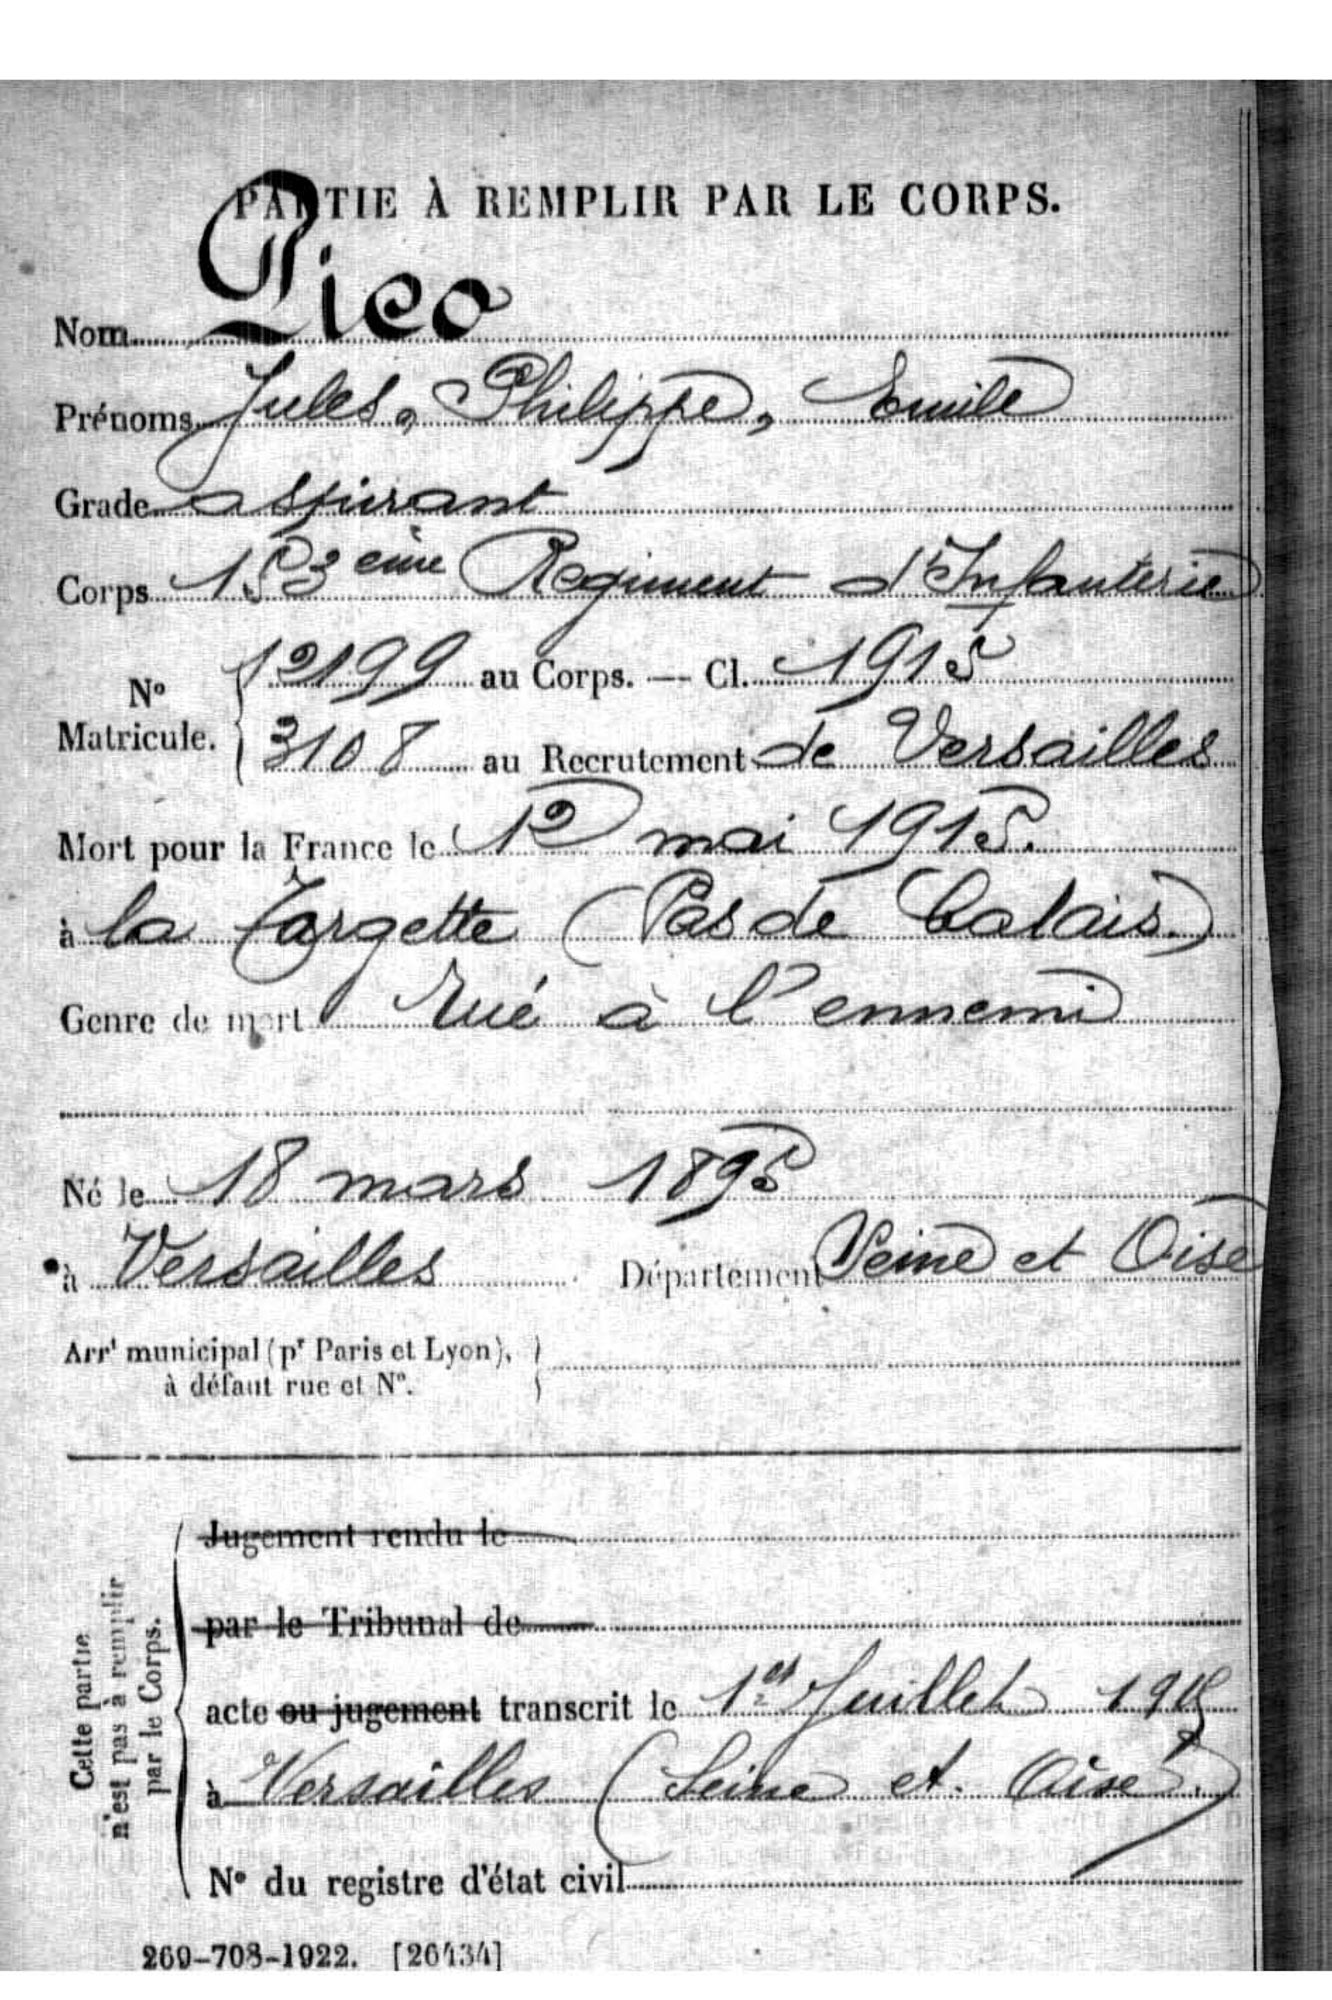 PARTIE À REMPLIR PAR LE CORPS.
Nom Pico
Prénoms Jules, Philippe, Emile
Grade aspirant
Corps 153 eme Regiment d'Infanterie
N° Matricule. 12199 au Corps. — Cl. 1915
3108 au Recrutement de Versailles
Mort pour la France le 12 mai 1915.
à la Targette (Pas de Calais.)
Genre de mort tué à l'ennemi
Né le 18 mars 1895
à Versailles Département Seine et Oise
Arrt municipal (pr Paris et Lyon),
à défaut rue et N°.
Cette partie n'est pas à remplir par le Corps.
Jugement rendu le
par le Tribunal de
acte ou jugement transcrit le 1er Juillet 1915
à Versailles (Seine et Oise.)
N° du registre d'état civil
269-708-1922. [26434]